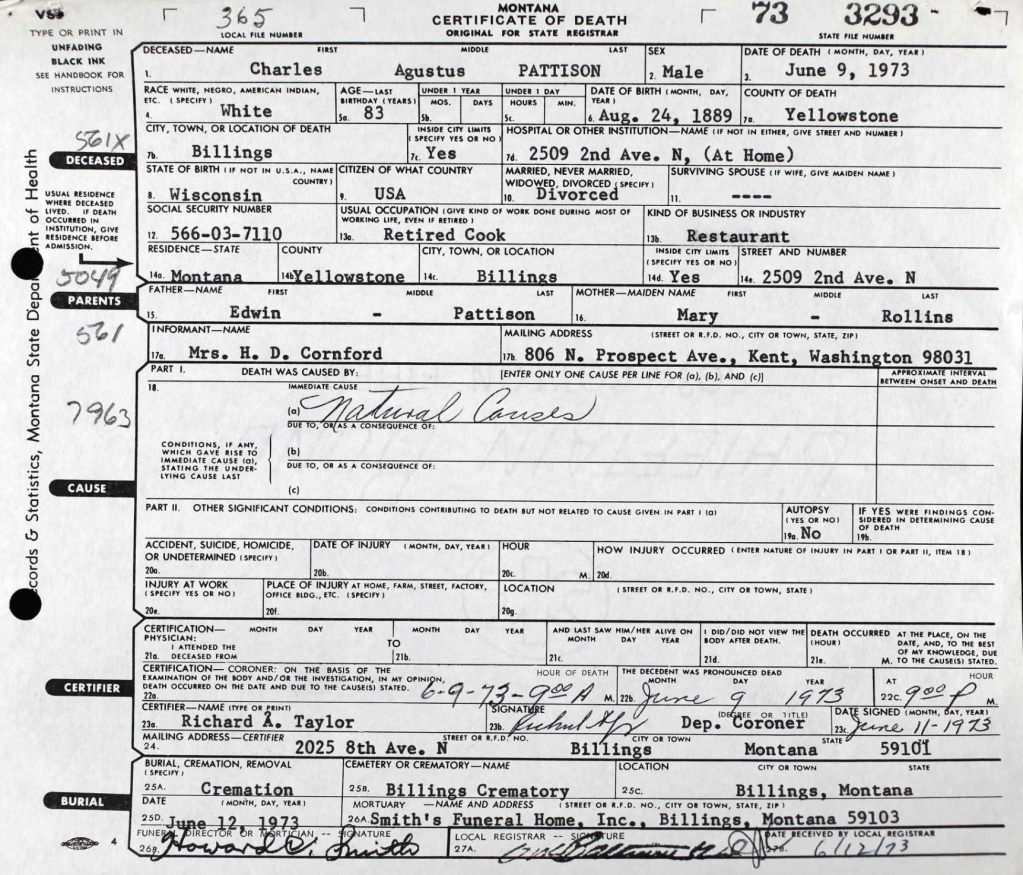 VS3
365
MONTANA
CERTIFICATE OF DEATH
ORIGINAL FOR STATE REGISTRAR
73 3293
LOCAL FILE NUMBER
STATE FILE NUMBER
TYPE OR PRINT IN
UNFADING
BLACK INK
SEE HANDBOOK FOR
INSTRUCTIONS
DECEASED—NAME FIRST MIDDLE LAST SEX DATE OF DEATH (MONTH, DAY, YEAR)
1. Charles Agustus PATTISON 2. Male 3. June 9, 1973
RACE WHITE, NEGRO, AMERICAN INDIAN, ETC. (SPECIFY) AGE—LAST BIRTHDAY (YEARS) UNDER 1 YEAR MOS. DAYS UNDER 1 DAY HOURS MIN. DATE OF BIRTH (MONTH, DAY, YEAR) COUNTY OF DEATH
4. White 5a. 83 5b. 5c. 6. Aug. 24, 1889 7a. Yellowstone
561X
DECEASED
CITY, TOWN, OR LOCATION OF DEATH INSIDE CITY LIMITS (SPECIFY YES OR NO) HOSPITAL OR OTHER INSTITUTION—NAME (IF NOT IN EITHER, GIVE STREET AND NUMBER)
7b. Billings 7c. Yes 7d. 2509 2nd Ave. N, (At Home)
USUAL RESIDENCE
WHERE DECEASED
LIVED. IF DEATH
OCCURRED IN
INSTITUTION, GIVE
RESIDENCE BEFORE
ADMISSION.
STATE OF BIRTH (IF NOT IN U.S.A., NAME COUNTRY) CITIZEN OF WHAT COUNTRY MARRIED, NEVER MARRIED, WIDOWED, DIVORCED (SPECIFY) SURVIVING SPOUSE (IF WIFE, GIVE MAIDEN NAME)
8. Wisconsin 9. USA 10. Divorced 11. ----
SOCIAL SECURITY NUMBER USUAL OCCUPATION (GIVE KIND OF WORK DONE DURING MOST OF WORKING LIFE, EVEN IF RETIRED) KIND OF BUSINESS OR INDUSTRY
12. 566-03-7110 13a. Retired Cook 13b. Restaurant
RESIDENCE—STATE COUNTY CITY, TOWN, OR LOCATION INSIDE CITY LIMITS (SPECIFY YES OR NO) STREET AND NUMBER
14a. Montana 14b Yellowstone 14c. Billings 14d. Yes 14e. 2509 2nd Ave. N
5049
PARENTS
FATHER—NAME FIRST MIDDLE LAST MOTHER—MAIDEN NAME FIRST MIDDLE LAST
15. Edwin - Pattison 16. Mary - Rollins
561
INFORMANT—NAME MAILING ADDRESS (STREET OR R.F.D. NO., CITY OR TOWN, STATE, ZIP)
17a. Mrs. H. D. Cornford 17b. 806 N. Prospect Ave., Kent, Washington 98031
PART I. DEATH WAS CAUSED BY: [ENTER ONLY ONE CAUSE PER LINE FOR (a), (b), AND (c)] APPROXIMATE INTERVAL BETWEEN ONSET AND DEATH
18. IMMEDIATE CAUSE
7963
(a) Natural Causes
DUE TO, OR AS A CONSEQUENCE OF:
CONDITIONS, IF ANY,
WHICH GAVE RISE TO
IMMEDIATE CAUSE (a),
STATING THE UNDER-
LYING CAUSE LAST
(b)
DUE TO, OR AS A CONSEQUENCE OF:
(c)
CAUSE
PART II. OTHER SIGNIFICANT CONDITIONS: CONDITIONS CONTRIBUTING TO DEATH BUT NOT RELATED TO CAUSE GIVEN IN PART I (a) AUTOPSY (YES OR NO) IF YES WERE FINDINGS CONSIDERED IN DETERMINING CAUSE OF DEATH
19a. No 19b.
ACCIDENT, SUICIDE, HOMICIDE, OR UNDETERMINED (SPECIFY) DATE OF INJURY (MONTH, DAY, YEAR) HOUR HOW INJURY OCCURRED (ENTER NATURE OF INJURY IN PART I OR PART II, ITEM 18)
20a. 20b. 20c. M. 20d.
INJURY AT WORK (SPECIFY YES OR NO) PLACE OF INJURY AT HOME, FARM, STREET, FACTORY, OFFICE BLDG., ETC. (SPECIFY) LOCATION (STREET OR R.F.D. NO., CITY OR TOWN, STATE)
20e. 20f. 20g.
CERTIFICATION— PHYSICIAN: MONTH DAY YEAR MONTH DAY YEAR AND LAST SAW HIM/HER ALIVE ON MONTH DAY YEAR I DID/DID NOT VIEW THE BODY AFTER DEATH. DEATH OCCURRED (HOUR) AT THE PLACE, ON THE DATE, AND, TO THE BEST OF MY KNOWLEDGE, DUE TO THE CAUSE(S) STATED.
21a. I ATTENDED THE DECEASED FROM TO 21b. 21c. 21d. 21e. M.
CERTIFICATION—CORONER: ON THE BASIS OF THE EXAMINATION OF THE BODY AND/OR THE INVESTIGATION, IN MY OPINION, DEATH OCCURRED ON THE DATE AND DUE TO THE CAUSE(S) STATED. HOUR OF DEATH THE DECEDENT WAS PRONOUNCED DEAD MONTH DAY YEAR AT HOUR
22a. 6-9-73-9:00 A M. 22b. June 9 1973 22c. 9:00 P M.
CERTIFIER
CERTIFIER—NAME (TYPE OR PRINT) SIGNATURE (DEGREE OR TITLE) DATE SIGNED (MONTH, DAY, YEAR)
23a. Richard A. Taylor 23b. Dep. Coroner 23c. June 11-1973
MAILING ADDRESS—CERTIFIER STREET OR R.F.D. NO. CITY OR TOWN STATE
24. 2025 8th Ave. N Billings Montana 59101
BURIAL, CREMATION, REMOVAL (SPECIFY) CEMETERY OR CREMATORY—NAME LOCATION CITY OR TOWN STATE
25A. Cremation 25B. Billings Crematory 25C. Billings, Montana
BURIAL
DATE (MONTH, DAY, YEAR) MORTUARY —NAME AND ADDRESS (STREET OR R.F.D. NO., CITY OR TOWN, STATE, ZIP)
25D. June 12, 1973 26A. Smith's Funeral Home, Inc., Billings, Montana 59103
FUNERAL DIRECTOR OR MORTICIAN -- SIGNATURE LOCAL REGISTRAR -- SIGNATURE DATE RECEIVED BY LOCAL REGISTRAR
4 26B. Howard C. Smith 27A. 27B. 6/12/73
ecords & Statistics, Montana State Depa nt of Health